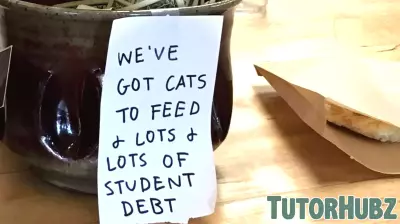 WE'VE
GOT CATS
TO FEED
& LOTS &
LOTS OF
STUDENT
DEBT
TUTORHUBZ